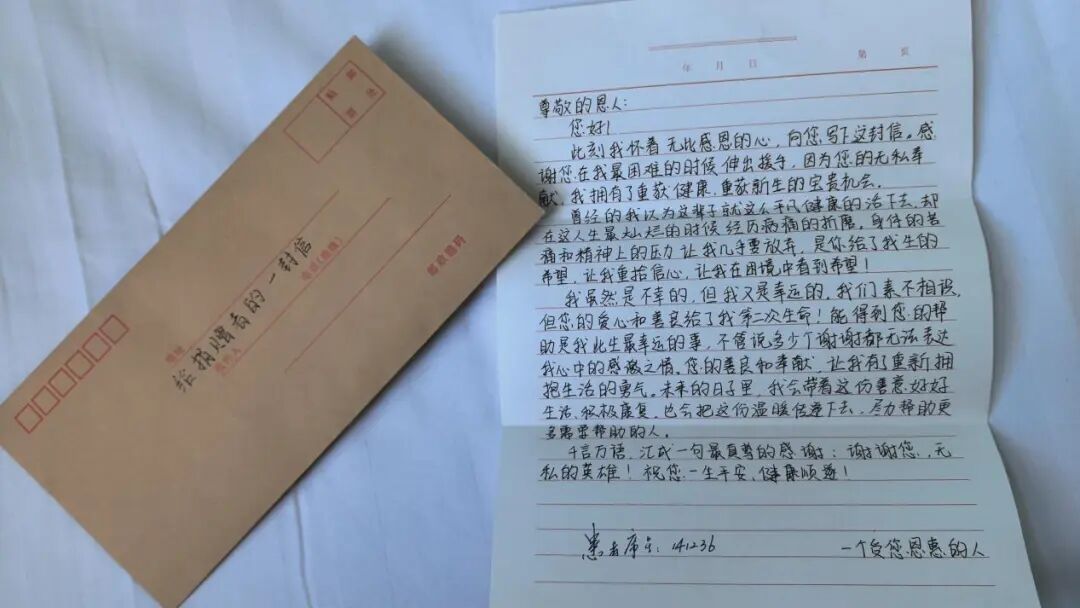 给捐赠者的一封信
邮政编码
年 月 日
第 页
尊敬的恩人：
您好！
此刻我怀着无比感恩的心，向您写下这封信。感
谢您在我最困难的时候伸出援手，因为您的无私奉
献，我拥有了重获健康，重获新生的宝贵机会。
曾经的我以为这辈子就这么平凡健康的活下去，却
在这人生最灿烂的时候经历病痛的折磨。身体的苦
痛和精神上的压力让我几乎要放弃，是你给了我生的
希望，让我重拾信心，让我在困境中看到希望！
我虽然是不幸的，但我又是幸运的，我们素不相识，
但您的爱心和善良给了我第二次生命！能得到您的帮
助是我此生最幸运的事，不管说多少个谢谢都无法表达
我心中的感激之情。您的善良和奉献，让我有了重新拥
抱生活的勇气。未来的日子里，我会带着这份善意，好好
生活、积极康复，也会把这份温暖传递下去，尽力帮助更
多需要帮助的人。
千言万语，汇成一句最真挚的感谢：谢谢您，无
私的英雄！祝您一生平安、健康顺遂！
患者序号：141236
一个受您恩惠的人